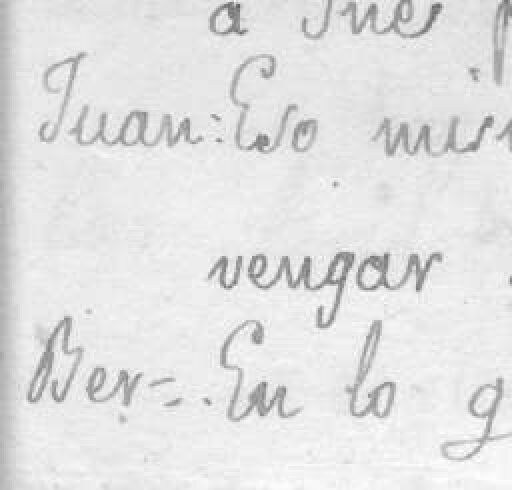 a Ines
Juan: Eso mis
vengar
Ber=. En lo g